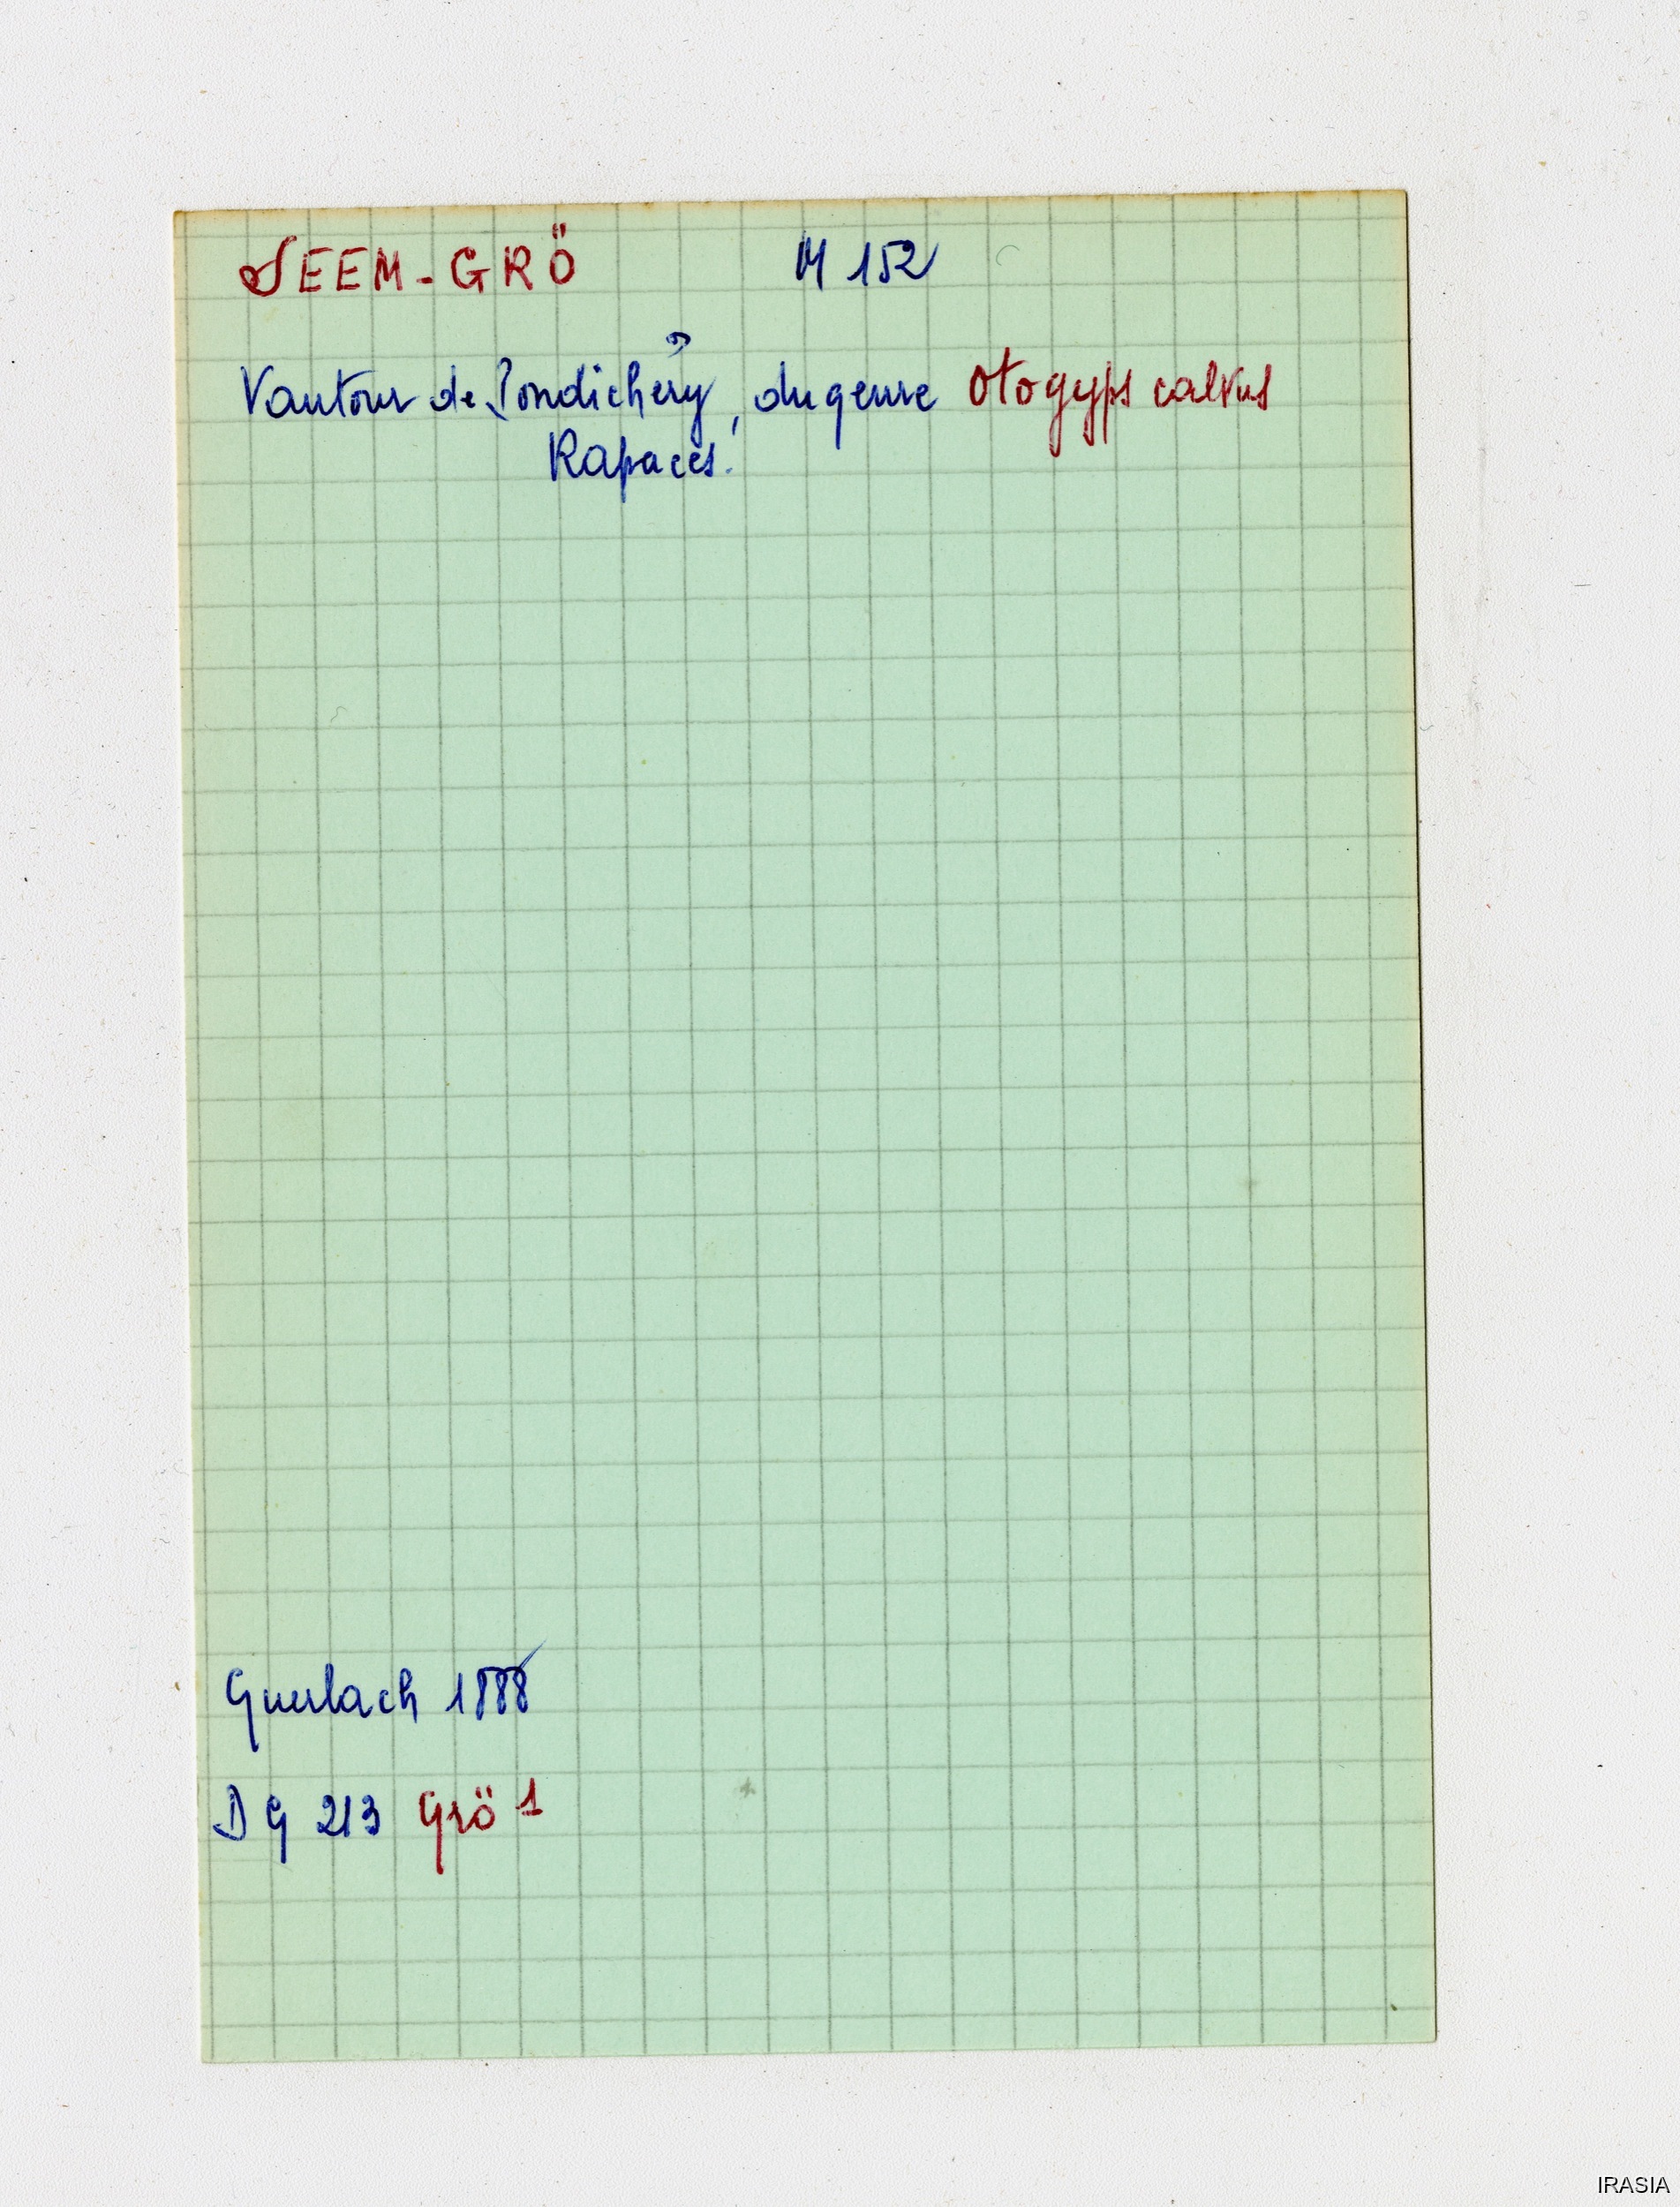 SEEM-GRÖ M 152
Vautour de Pondichéry, du genre Otogyps calvus
Rapaces.
Guerlach 1888
DG 213 Grö 1
IRASIA